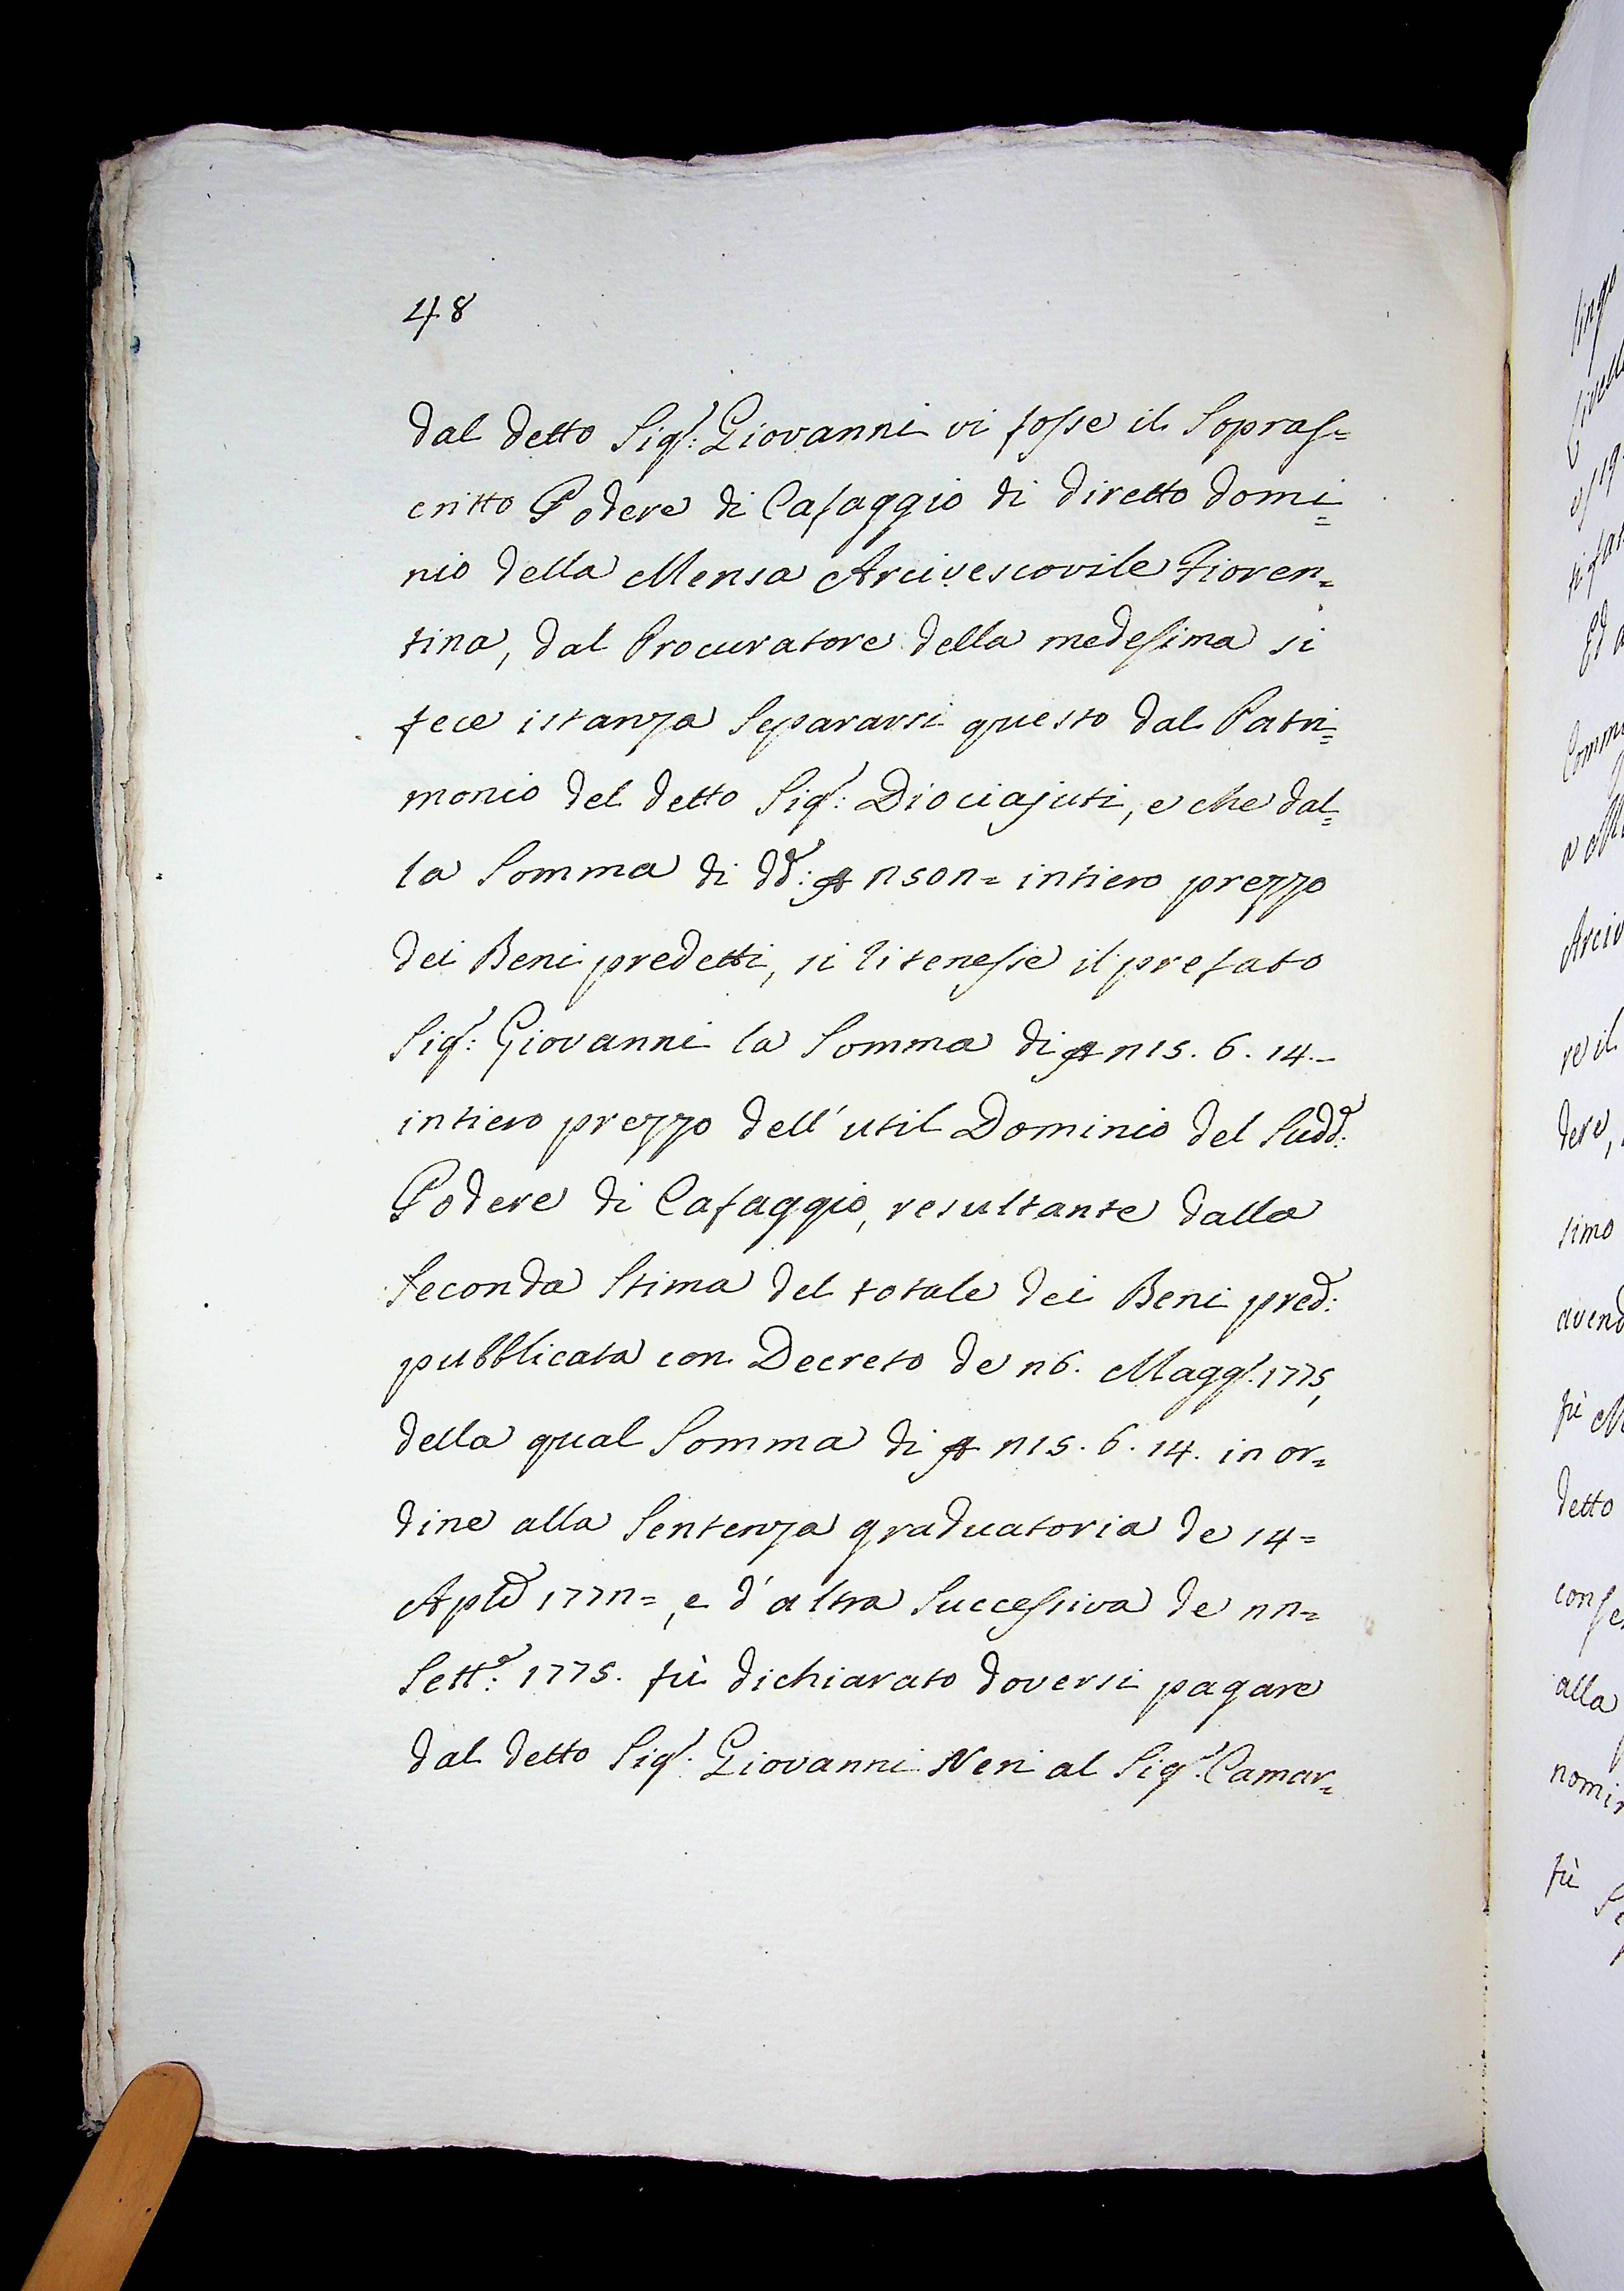 48
dal detto Sig.: Giovanni vi fosse il Sopras=
critto Podere di Cafaggio di diretto domi=
nio della Mensa Arcivescovile Fioren=
tina, dal Procuratore della medesima si
fece istanza Separarsi questo dal Patri=
monio del detto Sig.: Diociajuti, e che dal=
la Somma di dd.: ∆ 2502= intiero prezzo
dei Beni predetti, si ritenesse il prefato
Sig.: Giovanni la Somma di ∆ 215. 6. 14.-
intiero prezzo dell' util Dominio del Sudd.:
Podere di Cafaggio, resultante dalla
Seconda Stima del totale dei Beni pred.:
pubblicata con Decreto de 26. Magg. 1775,
della qual Somma di ∆ 215. 6. 14. in or=
dine alla Sentenza graduatoria de 14=
Aple 1772=, e d' altra Successiva de 22=
Sett.: 1775. fù dichiarato doversi pagare
dal detto Sig.: Giovanni Neri al Sig.: Camar=
re il
dere,
simo
detto
alla
fù